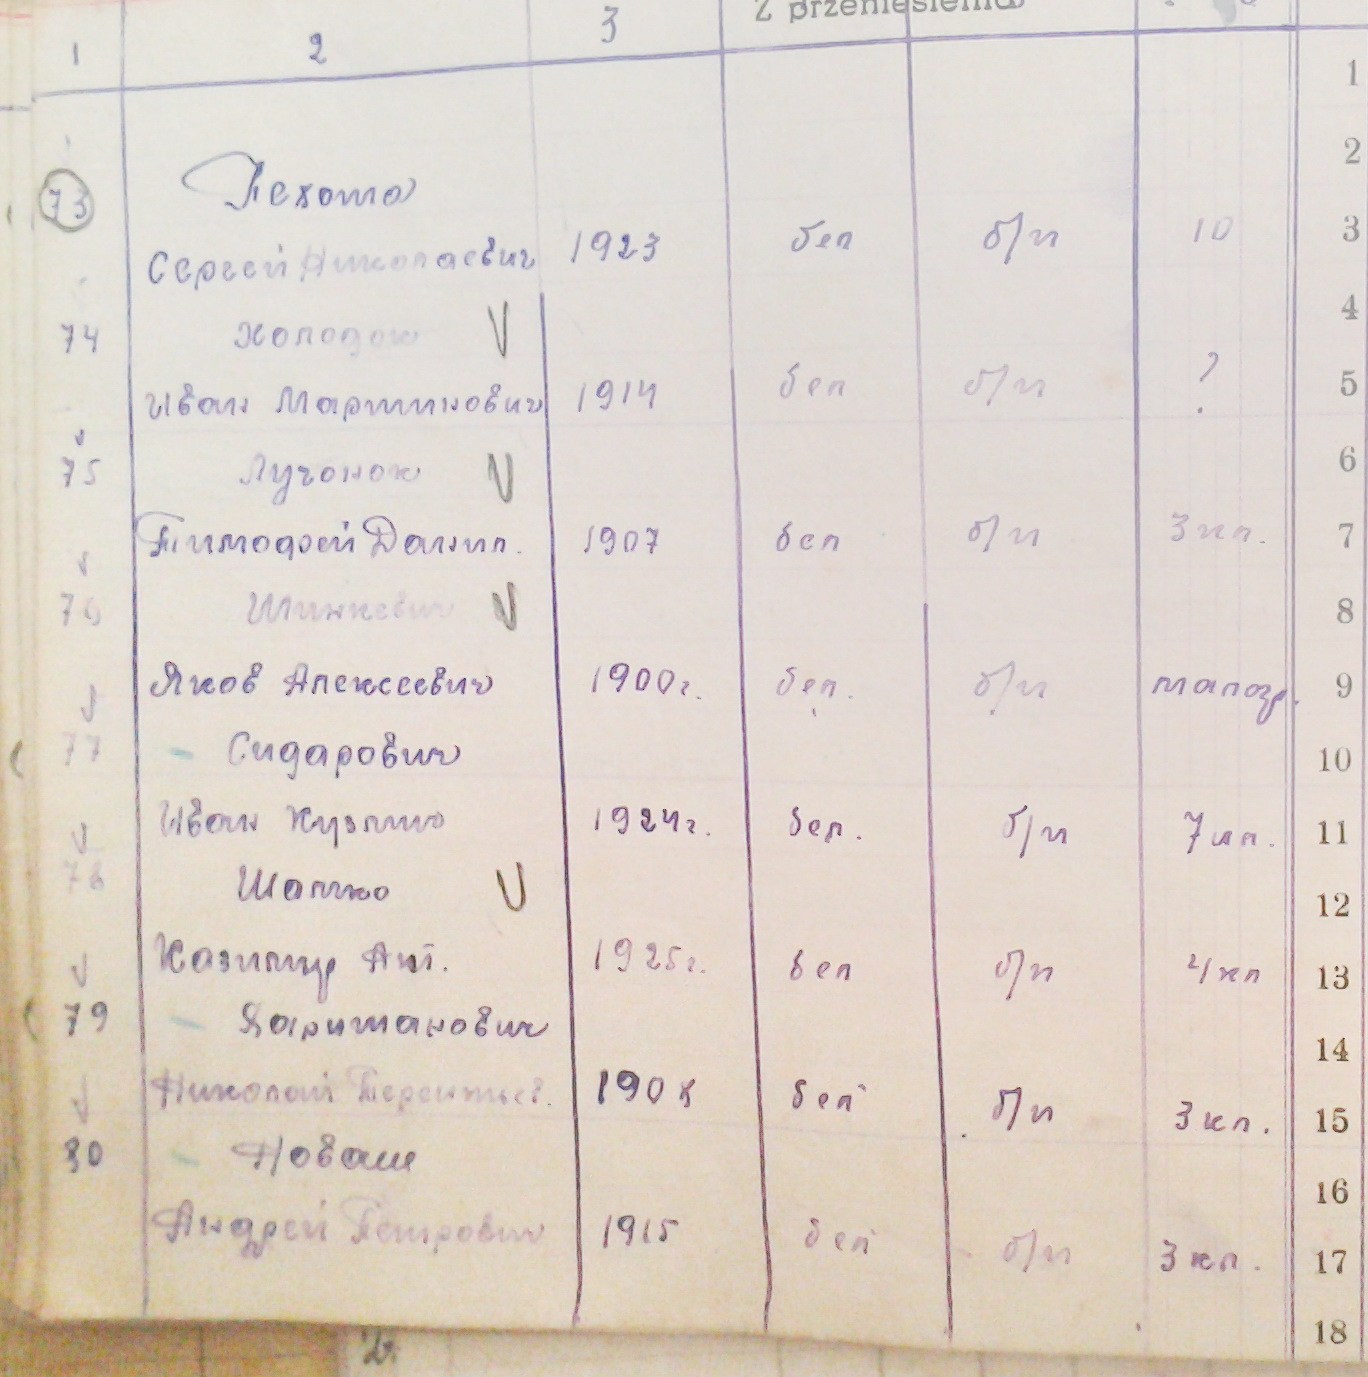 Z przeniesienia
1 2 3
1
2
73 Пехото
Сергей Николаевич 1923 бел б/п 10 3
4
74 Холодок V
Иван Мартинович 1914 бел б/п ? 5
75 Лучонок V 6
Тимофей Данил. 1907 бел б/п 3 кл. 7
76 Шинкевич V 8
Яков Алексеевич 1900г. бел. б/п малогр. 9
77 - Сидарович 10
Иван Кузьмич 1924г. бел. б/п 7 кл. 11
78 Шапко V 12
Казимир Ант. 1925г. бел б/п 4 кл 13
79 - 14
Николай Терентьев. 1908 бел б/п 3 кл. 15
80 - Новаш 16
Андрей Петрович 1915 бел б/п 3 кл. 17
18